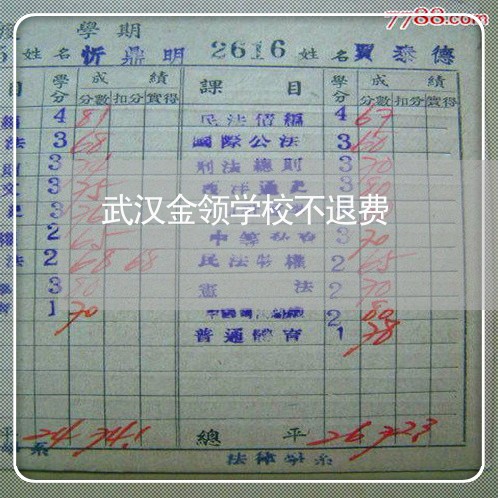 7788.com
學期
姓名 忻鼎明 2616 姓名 賈泰德
目 學分 成績 課目 學分 成績
分數 扣分 實得 分數 扣分 實得
4 81 民法債編 4 67
法 3 68 國際公法 3 60
3 刑法總則 3 70
3 75 3 80
3
武汉金领学校不退费
2 65 3 70
法 2 68 68 民法物權 2 65
3 80 憲法 2 70
1 70 2 80
普通體育 1 78
平 24 74.1 總平 26 72.3
系 法律學系